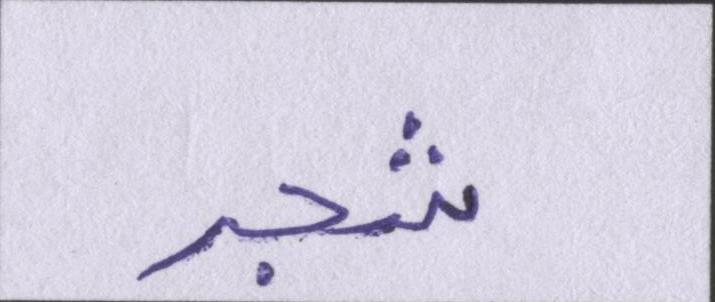 شجر